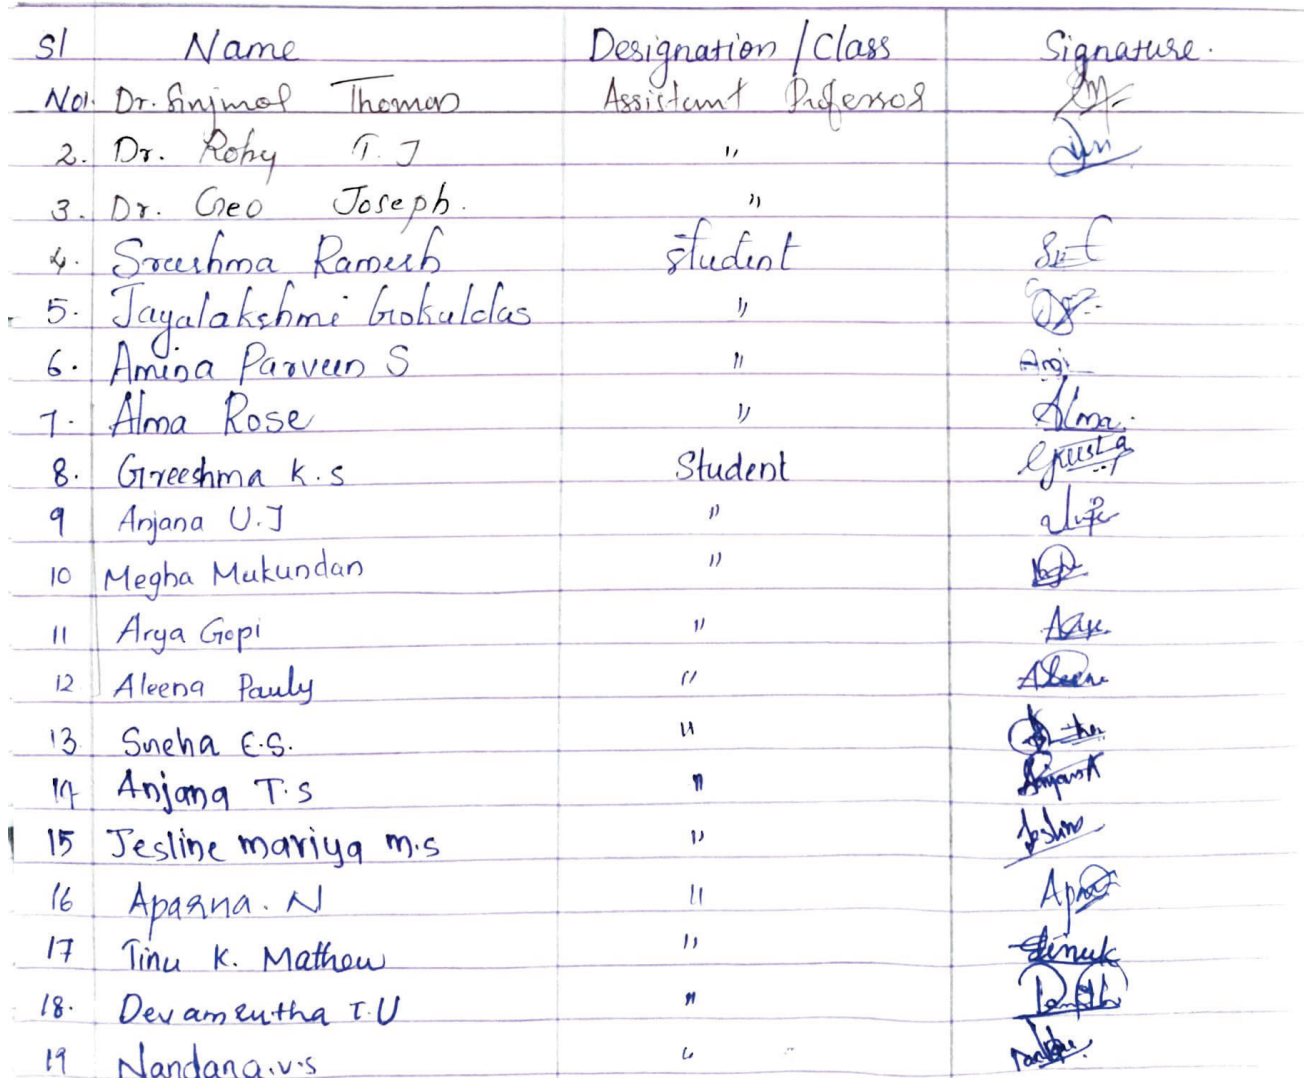 Sl Name Designation / Class Signature.
No1. Dr. Sinjmol Thomas Assistant Professor
2. Dr. Roby T. J "
3. Dr. Geo Joseph. "
4. Sreeshma Ramesh student
5. Jayalakshmi Gokuldas "
6. Amina Parveen S "
7. Alma Rose " Alma.
8. Greeshma K.S Student
9 Anjana U.J "
10 Megha Mukundan "
11 Arya Gopi "
12 Aleena Pauly " Aleena
13 Sneha E.S. "
14 Anjana T.S "
15 Jesline mariya m.s " Jeslin
16 Aparna. N "
17 Tinu K. Mathew " Tinuk
18. Devamrutha T.U "
19 Nandana.v.s "